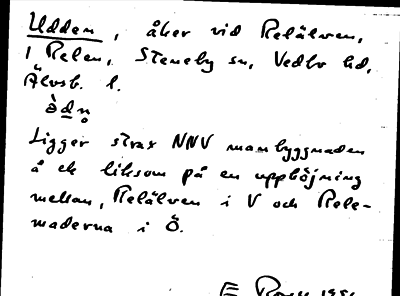 Udden, åker vid Relälven,
1 Relen, Steneby sn, Vedbo hd,
Älvsb. l.
ùdn̥
Ligger strax NNV manbyggnaden
å ek liksom på en upphöjning
mellan, Relälven i V och Rele-
maderna i Ö.
E